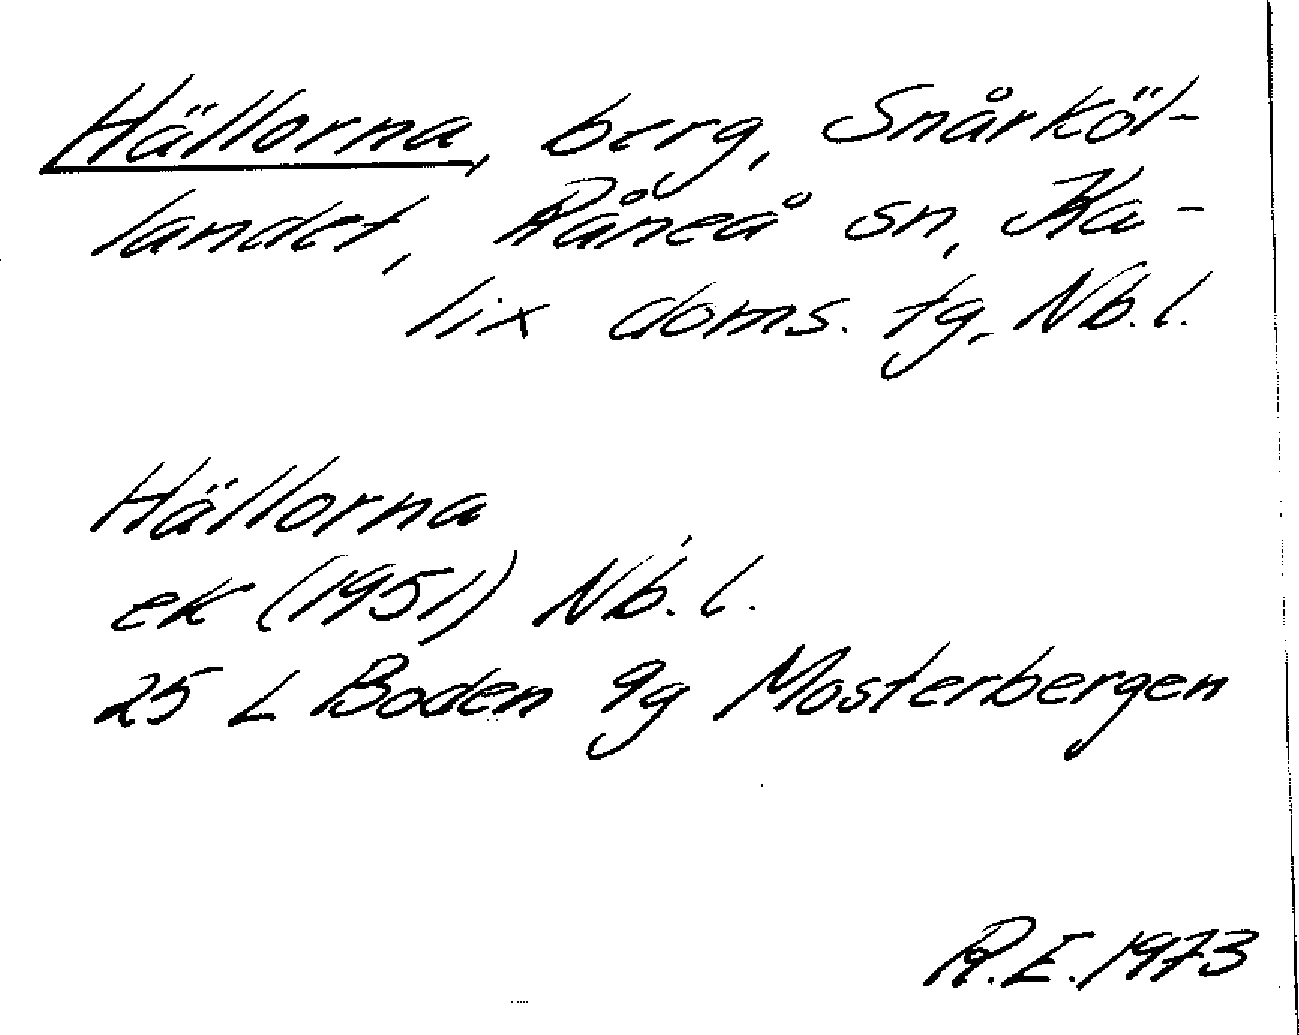 Hällorna, berg, Snårköt-
landet, Råneå sn, Ka-
lix doms. tg, Nb. l.
Hällorna
ek (1951) Nb. l.
25 L Boden 9g Mosterbergen
R.E. 1973